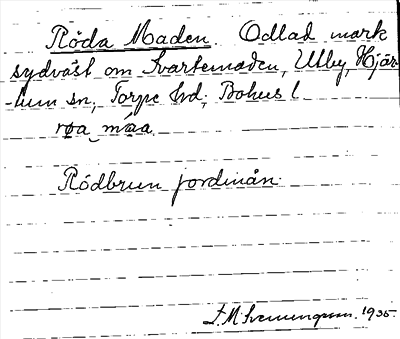 Röda Maden. Odlad mark
sydväst om Svartemaden, Utby, Hjär-
-tum sn, Torpe hd, Bohus l
røa maa
Rödbrun jordmån.
1935.